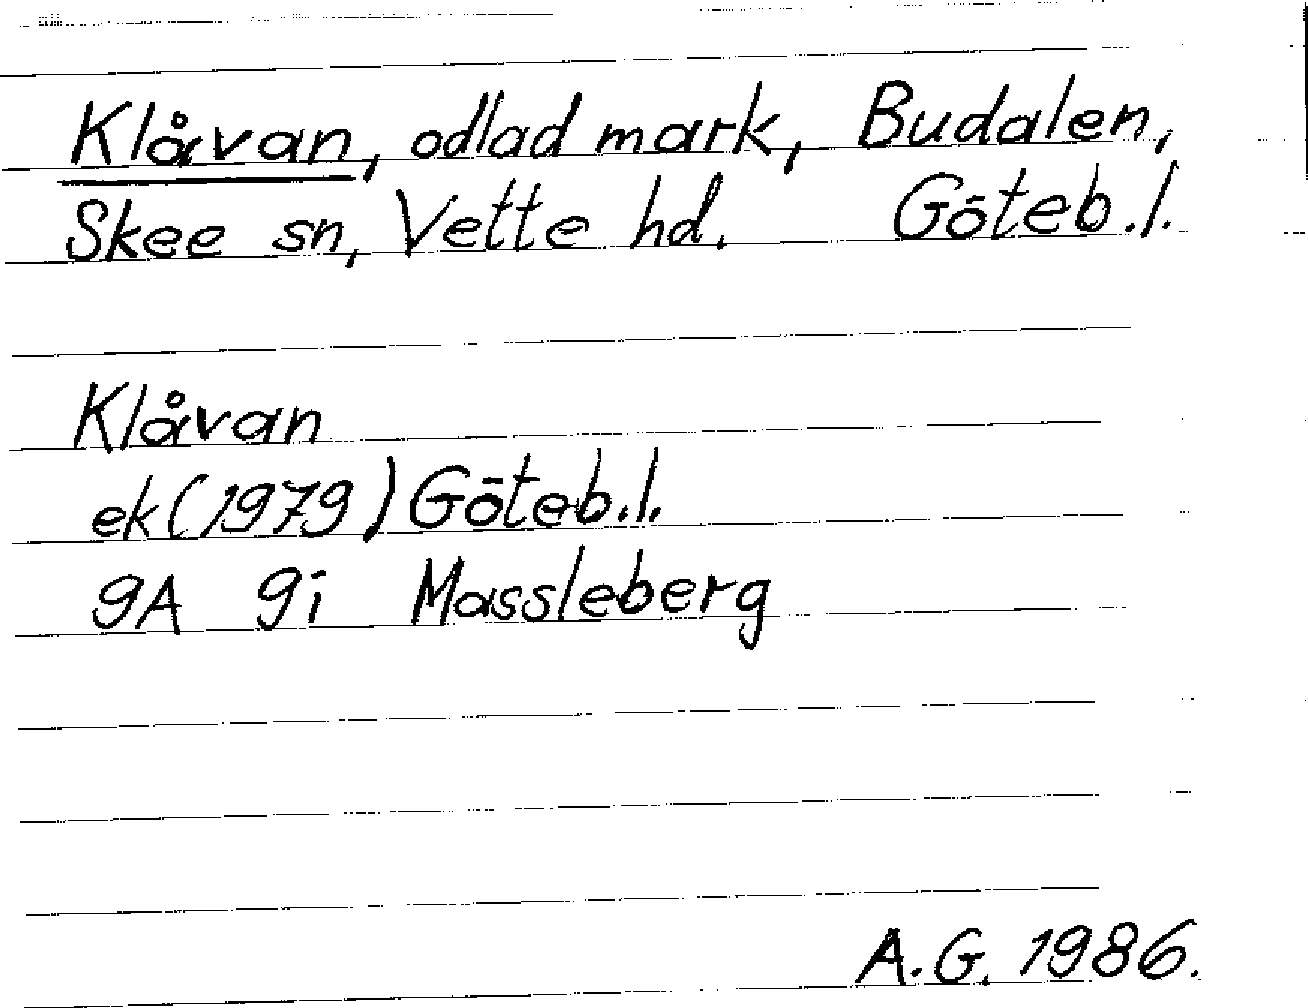 Klåvan, odlad mark, Budalen,
Skee sn, Vette hd. Göteb.l.
Klåvan
ek (1979) Göteb.l.
9A 9i Massleberg
A.G. 1986.